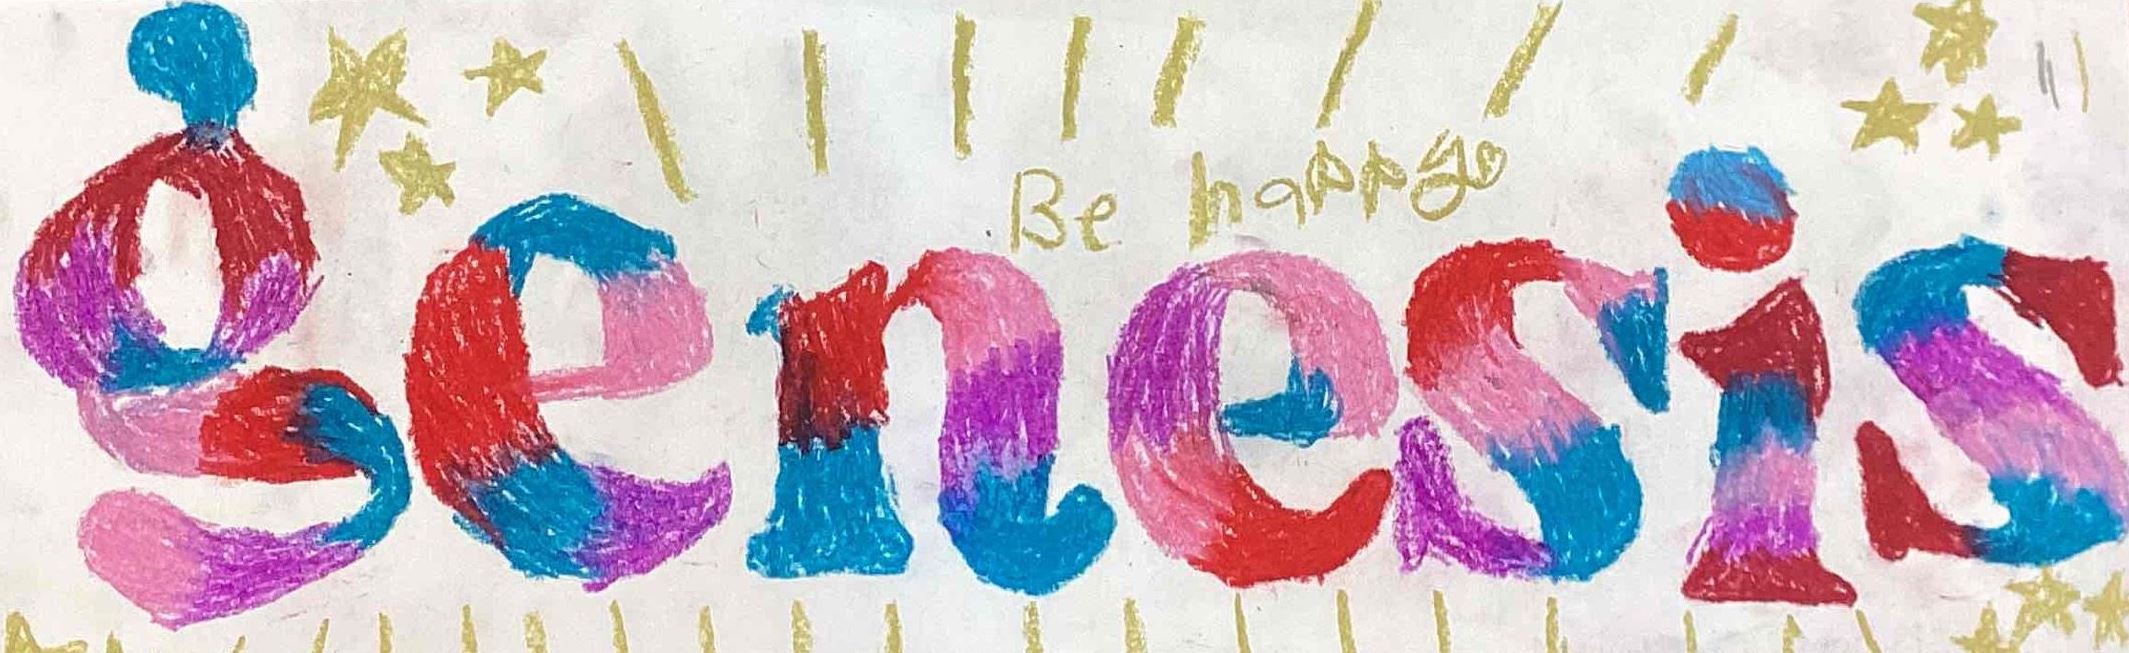 Be happy
genesis